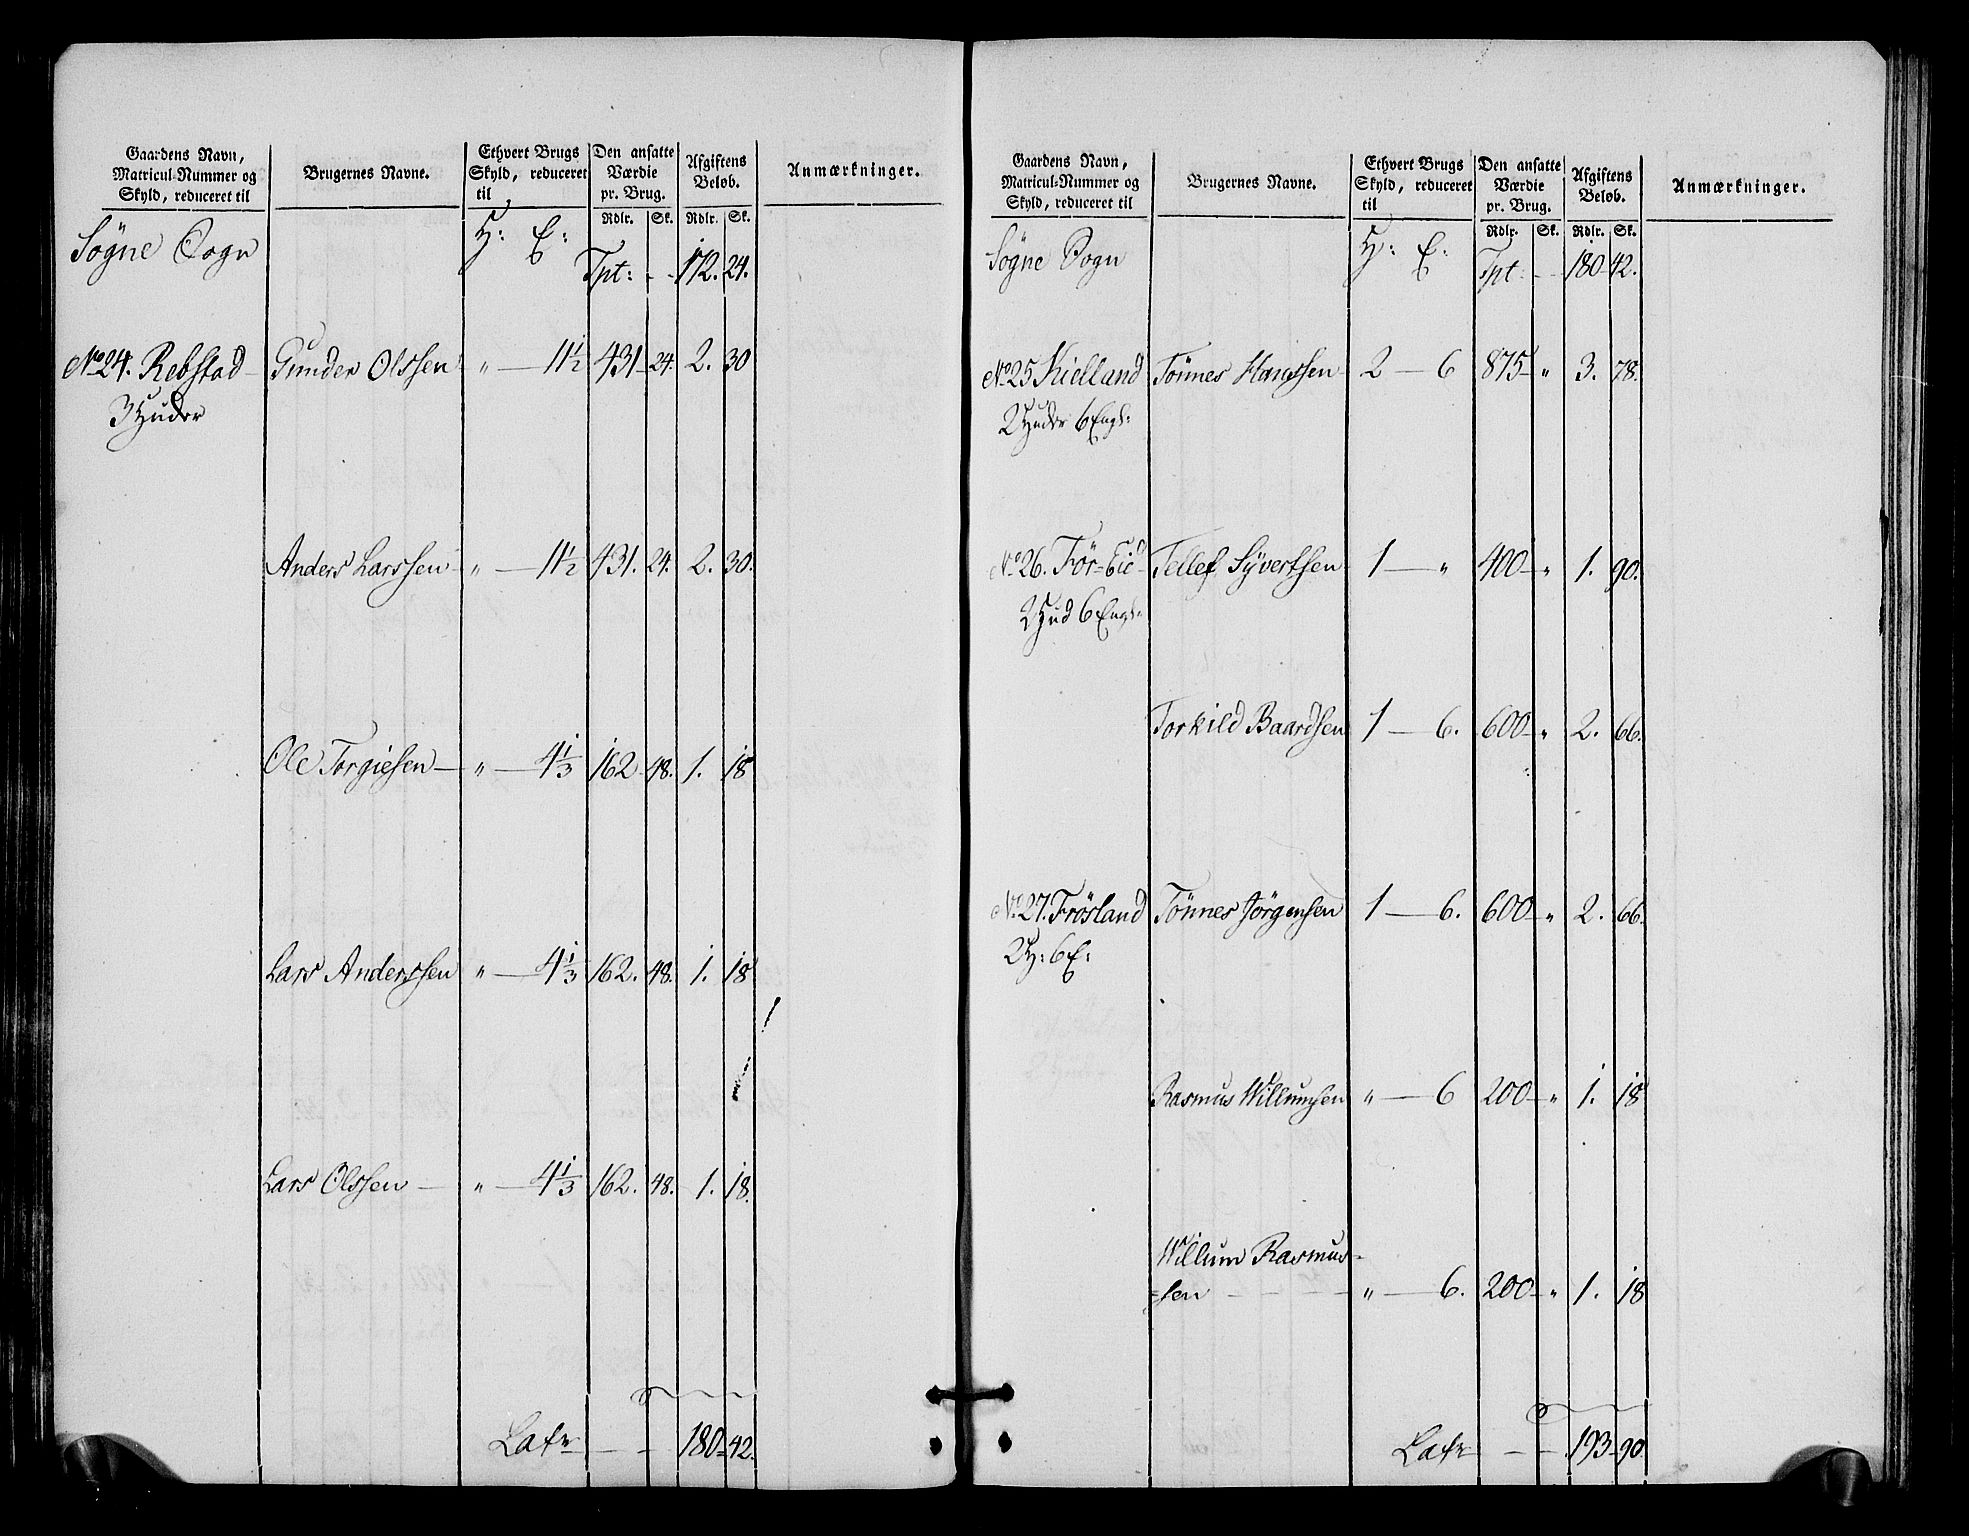 Gaardens Navn,
Matricul-Nummer og
Skyld, reduceret til
Brugernes Navne.
Ethvert Brugs
Skyld, reduceret
til
Den ansatte
Værdie
pr. Brug.
Afgiftens
Beløb.
Anmærkninger.
Rdlr. Sk. Rdlr. Sk.
Søgne Sogn H: E: Tpt: - - 172. 24.
No 24. Rebstad Gunder Olssen " — 11½ 431 - 24. 2. 30
3 Huder
Anders Larssen " — 11½ 431. 24. 2. 30.
Ole Torgiesen — " — 4⅓ 162 - 48. 1. 18
Lars Anderssen " — 4⅓ 162. 48. 1. 18
Lars Olssen — " — 4⅓ 162. 48. 1. 18.
Latr — - 180 - 42.
Gaardens Navn,
Matricul-Nummer og
Skyld, reduceret til
Brugernes Navne.
Ethvert Brugs
Skyld, reduceret
til
Den ansatte
Værdie
pr. Brug.
Afgiftens
Beløb.
Anmærkninger.
Rdlr. Sk. Rdlr. Sk.
Søgne Sogn H: E: Tpt: - - 180 - 42.
No 25 Kielland Tönnes Hanssen 2 — 6 875 - " 3. 78.
2 Huder 6 Engl:
No 26. För=Eid Tellef Syvertsen 1 — " 400 - " 1. 90.
2 Hud 6 Engl:
Torkild Baardsen 1 — 6. 600 - " 2. 66.
No 27. Frösland Tönnes Jörgensen 1 — 6. 600 - " 2. 66.
2 H: 6 E:
Rasmus Willumsen " — 6 200 - " 1. 18
Willum Rasmus-
=sen - - - - " — 6. 200 - " 1. 18
Latr - - 193 - 90.